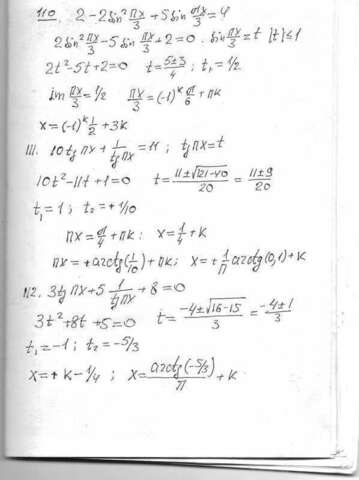 110 2 - 2sin² πx/3 + 5sin πx/3 = 4
2sin² πx/3 - 5sin πx/3 + 2 = 0 . sin πx/3 = t |t| ≤ 1
2t² - 5t + 2 = 0 t = 5±3/4 ; t₁ = 1/2
sin πx/3 = 1/2 πx/3 = (-1)^k π/6 + πk
x = (-1)^k 1/2 + 3k
111. 10tg πx + 1/tg πx = 11 ; tg πx = t
10t² - 11t + 1 = 0 t = 11±√121-40/20 = 11±9/20
t₁ = 1 ; t₂ = +1/10
πx = π/4 + πk ; x = 1/4 + k
πx = +arctg(1/10) + πk ; x = +1/π arctg(0,1) + k
112. 3tg πx + 5 1/tg πx + 8 = 0
3t² + 8t + 5 = 0 t = -4±√16-15/3 = -4±1/3
t₁ = -1 ; t₂ = -5/3
x = + k - 1/4 ; x = arctg(-5/3)/π + k